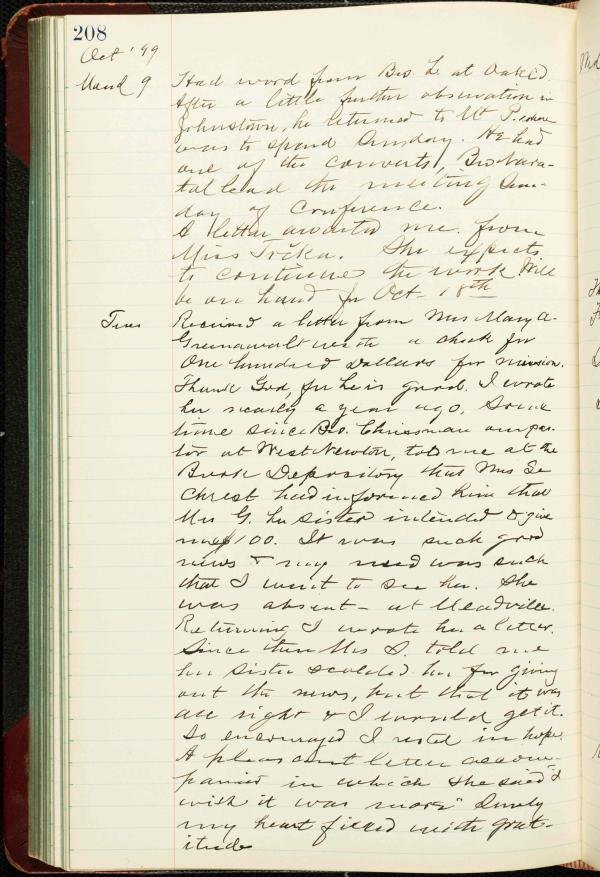 208
Oct '99
Mond 9 Had word from Bro. L. at Oakd.
After a little further observation in
Johnstown, he returned to Mt P. where
was to spend Sunday. He had
one of the converts, Bro
lead the meeting Sun-
day of Conference.
A letter awaited me from
Miss Trcka. She expects
to continue the work Will
be on hand for Oct 18th
Tues Received a letter from Mrs Mary A.
Greenawalt with a check for
One hundred Dollars for mission.
Thank God, for he is good. I wrote
her nearly a year ago. Some
time since Bro. Chrissman our pas-
tor at West Newton, told me at the
Book Depository that Mrs Se
Christ had informed him that
Mrs G. her sister intended to give
me $100. It was such good
news & my need was such
that I went to see her. She
was absent - at Meadville.
Returning I wrote her a letter.
Since then Mrs S. told me
her sister scolded her for giving
out the news, but that it was
all right & I would get it.
So encouraged I rested in hope.
A pleasant letter accom-
panied in which she said "I
wish it was more" Surely
my heart filled with grat-
itude